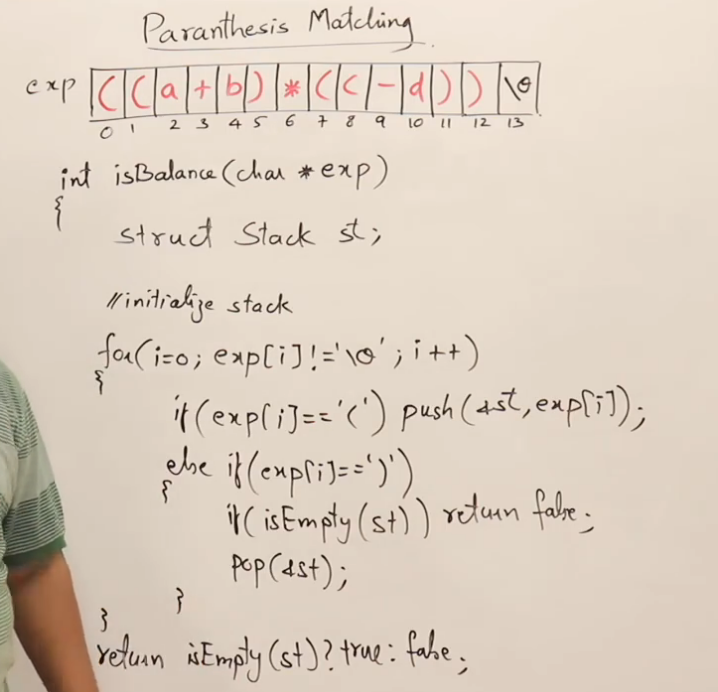 Paranthesis Matching
exp ( ( a + b ) * ( c - d ) ) \0
0 1 2 3 4 5 6 7 8 9 10 11 12 13
int isBalance(char *exp)
{
struct Stack st;
//initialize stack
for(i=0; exp[i]!='\0'; i++)
{
if(exp[i]=='(') push(&st,exp[i]);
else if(exp[i]==')')
{
if(isEmpty(st)) return false;
pop(&st);
}
}
return isEmpty(st)? true: false;